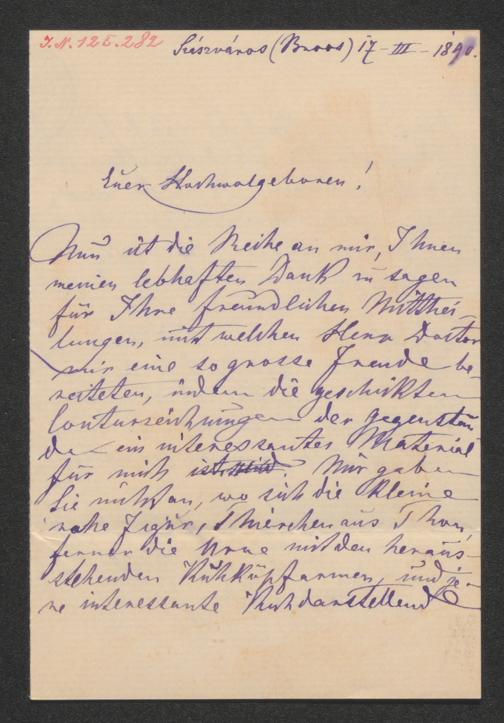 J.N. 125.282 Szászváros (Broos) 17-III-1890.
Euer Hochwolgeboren!
Nun ist die Reihe an mir, Ihnen
meinen lebhaften Dank zu sagen
für Ihre freundlichen Mitthei-
lungen, mit welchen Herr Doctor
mir eine so grosse Freude be-
reiteten, indem die geschikten
Conturzeichnungen der Gegenstän
de ein interessantes Material
für mich ist sind. Mir gaben
Sie nicht an, wo sich die kleine
rohe Figur, Thierchen aus Thon,
ferner die Urne mit den heraus-
stehenden Kuhköpfarmen, und je-
ne interessante Kuhdarstellend